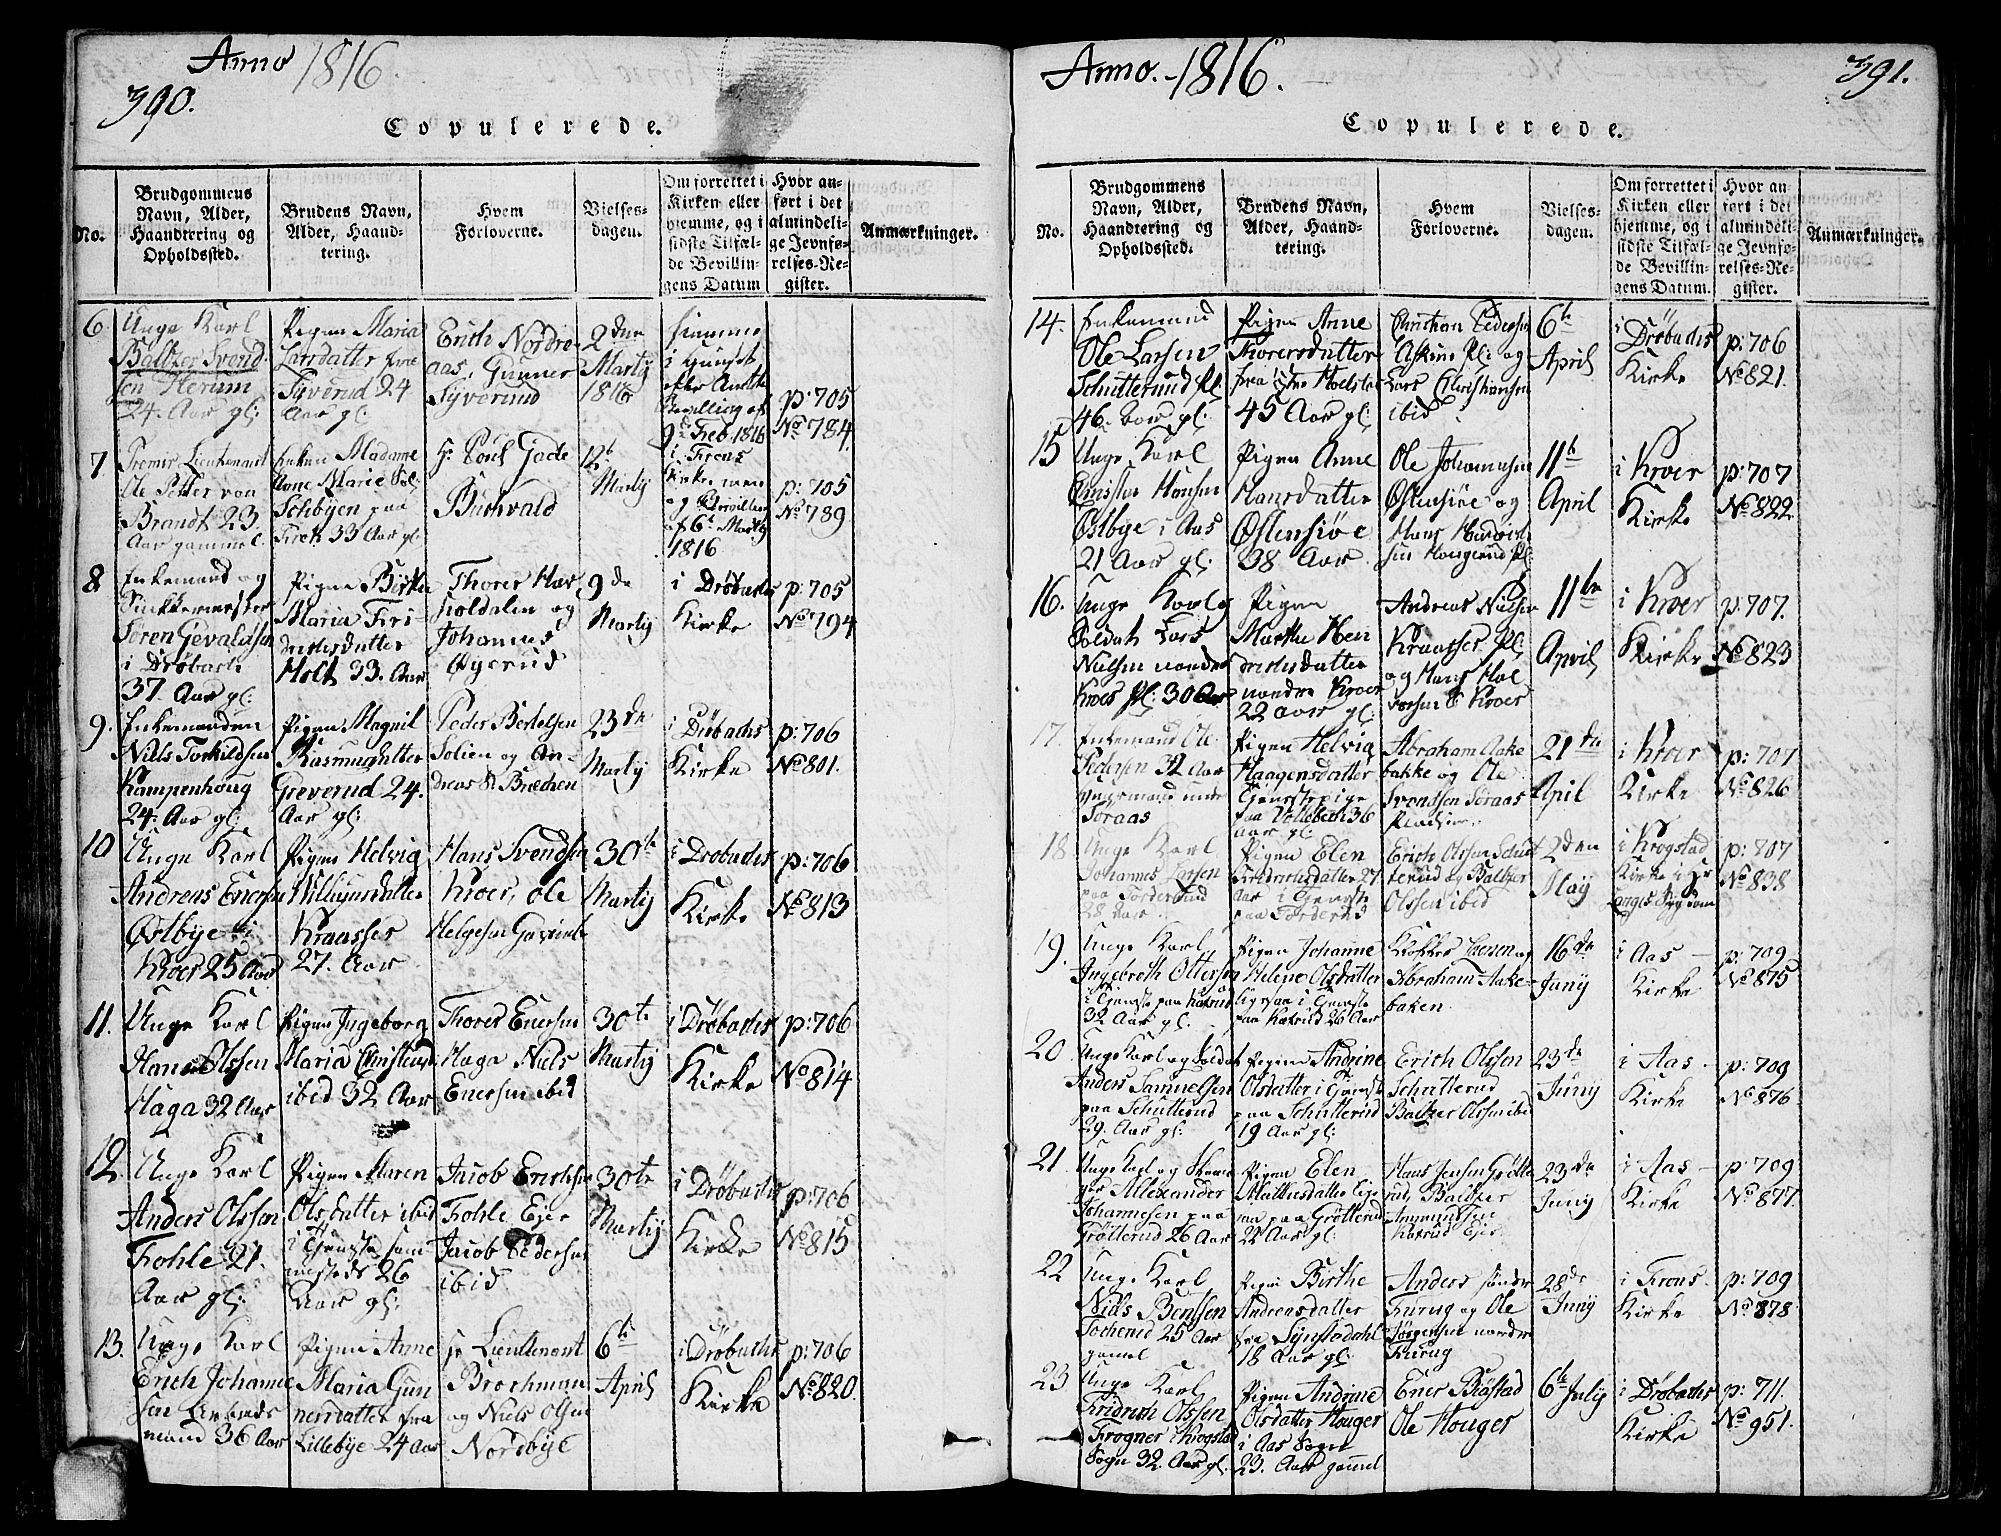 Anno 1816.
390.
Copulerede.
No.
Brudgommens Navn, Alder, Haandtering og Opholdssted.
Brudens Navn, Alder, Haandtering.
Hvem Forloverne.
Vielses-dagen.
Om forrettet i Kirken eller hjemme, og i sidste Tilfælde Bevillingens Datum
Hvor anført i det almindelige Jevnførelses-Register.
Anmærkninger.
6
Unge Karl
Baltzer Svend-
sen Herum
24. Aar gl:
Pigen Maria
Larsdatter
Syverud 24
Aar gl:
Erich Nordre
aas, Gunner
Syverud
2den
Martij
1816
hiemme
9de Feb. 1816
p: 705
No 784.
7
Premier Lieutenant
Ole Petter von
Brandt 23
Aar gammel.
Enken Madame
Anne Marie
paa
33 Aar gl:
Hr. Poul Gade
Buchvald
12te
Martij
i Frons
Kirke
af 6te Martij
1816
p: 705
No 789
8
Enkemand og
Snikkermester
Søren Gevaldsen
i Drøbach
37. Aar gl:
Pigen Birthe
Maria Fri
derichsdatter
Holt 33. Aar
Thorer Har
holdalen og
Johannes
Øyerud
9de
Martij
i Drøbachs
Kirke
p: 705
No 794
9.
Enkemanden
Niels Torkildsen
Kampenhoug
24. Aar gl:
Pigen Magnil
Rasmusdtter
Greverud 24.
Aar gl:
Peder Bertelsen
Solien og An-
dreas
23de
Martij
i Drøbachs
Kirke
p: 706
No 801.
10
Unge Karl
Andreas Enersen
Østbye i
Kroer 25 Aar
Pigen Helvig
Willumsdatter
Kraasser
27. Aar
Hans Svendsen
Kroer, Ole
Helgesen
30te
Martij
i Drøbachs
Kirke
p: 706
No 813
11.
Unge Karl
Hans Olssen
Haga 32 Aar
Pigen Ingeborg
Maria
ibid 32 Aar
Thorer Enersen
Haga Niels
Enersen ibid
30te
Martij
i Drøbachs
Kirke
p: 706
No 814
12.
Unge Karl
Anders Olssen
Fohle 21.
Aar gl:
Pigen Maren
Olsdatter ibid
i Tjeneste sam
mesteds 26
Aar gl:
Jacob Erichsen
Fohle Eier
Jacob Pedersen
ibid
30te
Martij
i Drøbachs
Kirke
p: 706
No 815
13.
Unge Karl
Erich Johanne
sen
mand 36 Aar
Pigen Anne
Maria Gun
nersdatter fra
Lillebye 24 Aar
Hr Lieutenant
Brochman
og Niels Olsen
Nordbye
6te
April
i Drøbachs
Kirke
p: 706
No 820.
Anno. 1816.
391.
Copulerede.
No.
Brudgommens Navn, Alder, Haandtering og Opholdssted.
Brudens Navn, Alder, Haandtering.
Hvem Forloverne.
Vielses-dagen.
Om forrettet i Kirken eller hjemme, og i sidste Tilfælde Bevillingens Datum.
Hvor anført i det almindelige Jevnførelses-Register.
Anmærkninger.
14.
Enkemand
Ole Larsen
Schutterud Pl.
46. Aar gl:
Pigen Anne
Thorersdatter
fra
45 Aar gl:
Christian Pedersen
Askim Pl: og
Lars Christiansen
ibid
6te
April
i Drøbachs
Kirke
p: 706
No 821.
15
Unge Karl
Christen Hansen
Østbye i Aas
21 Aar gl:
Pigen Anne
Hansdatter
Østensiøe
38 Aar
Ole Johannesen
Østensiøe og
Hans
sen Hougerud Pl.
11te
April
i Kroer
Kirke
p: 707
No 822.
16.
Unge Karl og
Soldat Lars
Nielsen nordre
Kroer Pl: 30 Aar
Pigen
Marthe Hen
drichsdatter
nordre Kroer
22 Aar gl:
Andreas Nielsen
Kraasser Pl:
og Hans Hal
vorsen S. Kroer
11te
April
i Kroer
Kirke
p: 707.
No 823
17.
Enkemand Ole
Pedersen 32 Aar
under
Søraas
Pigen Helvig
Haagensdatter
Tjenestepige
paa Vollebech 36
Aar gl:
Abraham Aake
bakke og Ole
Svendsen Søraas
21de
April
i Kroer
Kirke
p: 707
No 826
18.
Unge Karl
Johannes Larsen
paa Forderud
28 Aar
Pigen Elen
Fridrichsdatter 27
Aar i Tjeneste
paa Forderud
Erich Olssen Schut
terud og Baltzer
Olssen ibid
2den
Maij
i Krogstad
Kirke
p: 707
No 838
19.
Unge Karl
Ingebreth Ottersen
i Tjeneste paa
32 Aar gl:
Pigen Johanne
Helene Olsdatter
i Tjeneste
paa 26 Aar
Klokker Iversen og
Abraham Aake-
baken.
16de
Junij
i Aas
Kirke
p: 709
No 875
20.
Unge Karl og Soldat
Anders Samuelsen
paa Schutterud
29. Aar gl:
Pigen Andrine
Olsdatter i Tjeneste
paa Schutterud
19 Aar gl:
Erich Olssen
Schutterud
Baltzer Olssen ibid
23de
Junij
i Aas.
Kirke
p: 709
No 876
21.
Unge Karl og
Alexander
Johannesen paa
Grøtterud 26 Aar
Pigen Elen
paa Grøtterud
22 Aar gl:
Hans Jensen Grøtte
rud, Baltzer
Amundsen
23de
Junij
i Aas
Kirke
p: 709
No 877.
22
Unge Karl
Niels Bentsen
25 Aar
gamel
Pigen Birthe
Andreasdatter
fra
18 Aar gl:
Anders søndre
Furug og Ole
Jørgensen nordre
Furug
28de
Junij
i Frons
Kirke
p: 709
No 878.
23
Unge Karl
Fridrich Olssen
Frogner i Krogstad
Sogn 32 Aar gl:
Pigen Andrine
Olsdatter Houger
i Aas Sogn
23. Aar gamel
Ener Biøstad
Ole Houger
6te Julij
i Drøbachs
Kirke
p: 711.
No 951.